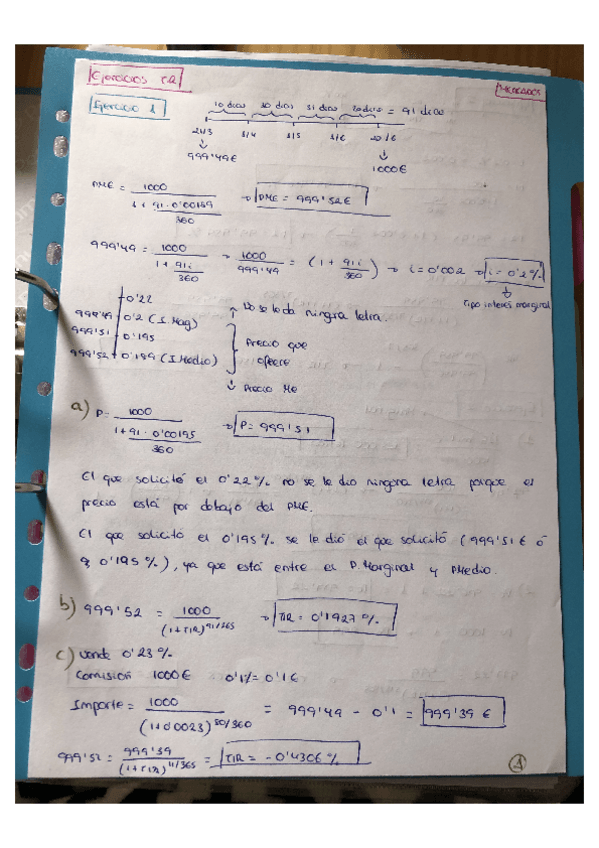 Ejercicios T.2
MERCADOS
Ejercicio 1
10 días 30 días 31 días 20 días = 91 días
21/3 1/4 1/5 1/6 20/6
999'49€ 1000€
PME = 1000 / (1 + 91 · 0'00189 / 360) → PME = 999'52€
999'49 = 1000 / (1 + 91i / 360) → 1000 / 999'49 = (1 + 91i / 360) → i = 0'002 → i = 0'2%
Tipo interés marginal
0'22 → No se le da ninguna letra.
999'49 0'2 (I. Mag)
999'51 0'195 Precio que ofrece
999'52 0'189 (I. Medio)
→ Precio Me
a) P = 1000 / (1 + 91 · 0'00195 / 360) → P = 999'51
El que solicitó el 0'22% no se le dio ninguna letra porque el
precio está por debajo del PME.
El que solicitó el 0'195% se le dió el que solicitó (999'51€ ó
0'195%), ya que está entre el P. Marginal y PMedio.
b) 999'52 = 1000 / (1+TIR)^91/365 → TIR = 0'1927%
c) Vende 0'23%
Comisión 1000€ 0'1% = 0'1€
Importe = 1000 / (1+0'0023)^80/360 = 999'49 - 0'1 = 999'39 €
999'52 = 999'39 / (1+TIR)^11/365 = TIR = -0'4306%
1